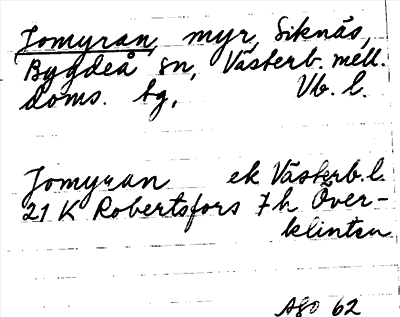 Jomyran, myr, Siknäs,
Bygdeå sn, Västerb. mell.
doms. bg, Vb. l.
Jomyran ek Västerb. l.
21 K Robertsfors 7 h Över-
klinten
Ago 62